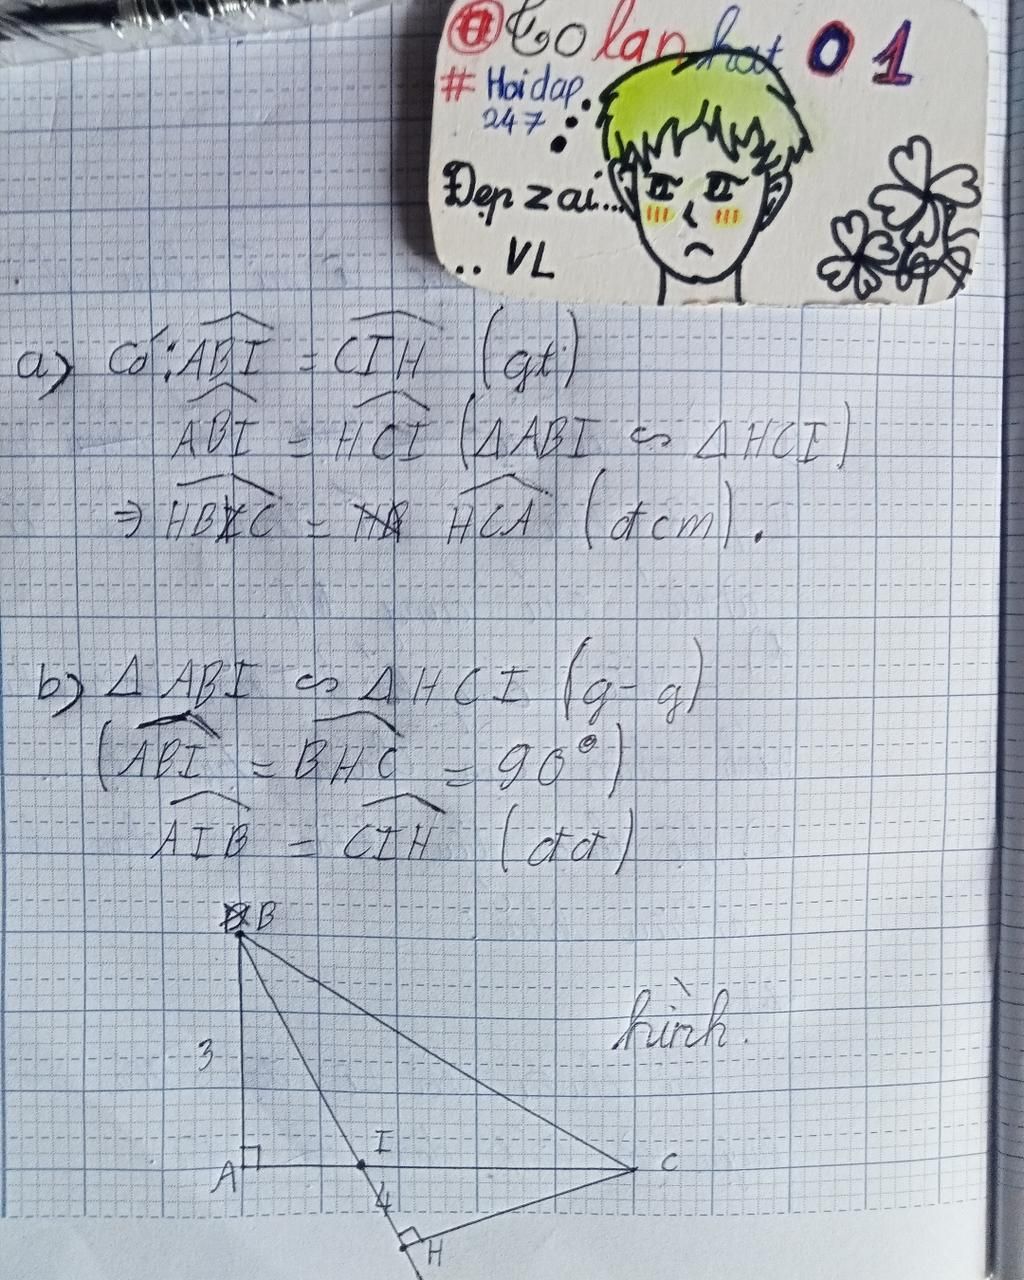 Colanhat 01
# Hoidap
247
Đẹp zai...
.. VL
a) Có: ABI = CIH (gt)
ABI = HCI (ΔABI ∽ ΔHCI)
⇒ HBC = HCA (đcm).
b) Δ ABI ∽ Δ HCI (g-g)
(ABI = BHC = 90°)
AIB = CIH (đđ)
B
hình.
3
I
A
C
4
H